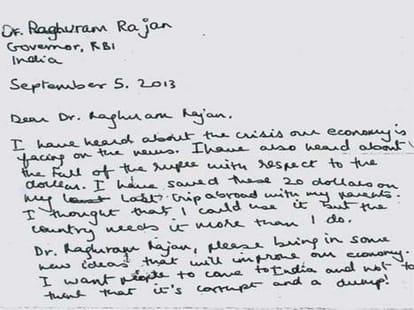 Dr. Raghuram Rajan
Governor, RBI
India
September 5. 2013
Dear Dr. Raghuram Rajan.
I have heard about the crisis our economy is
facing on the news. I have also heard about
the fall of the rupee with respect to the
dollar. I have saved these 20 dollars on
my last trip abroad with my parents.
I thought that I could use it but the
country needs it more than I do.
Dr. Raghuram Rajan, please bring in some
new ideas that will improve our economy.
I want people to come to India and not to
that it's corrupt and a dump!